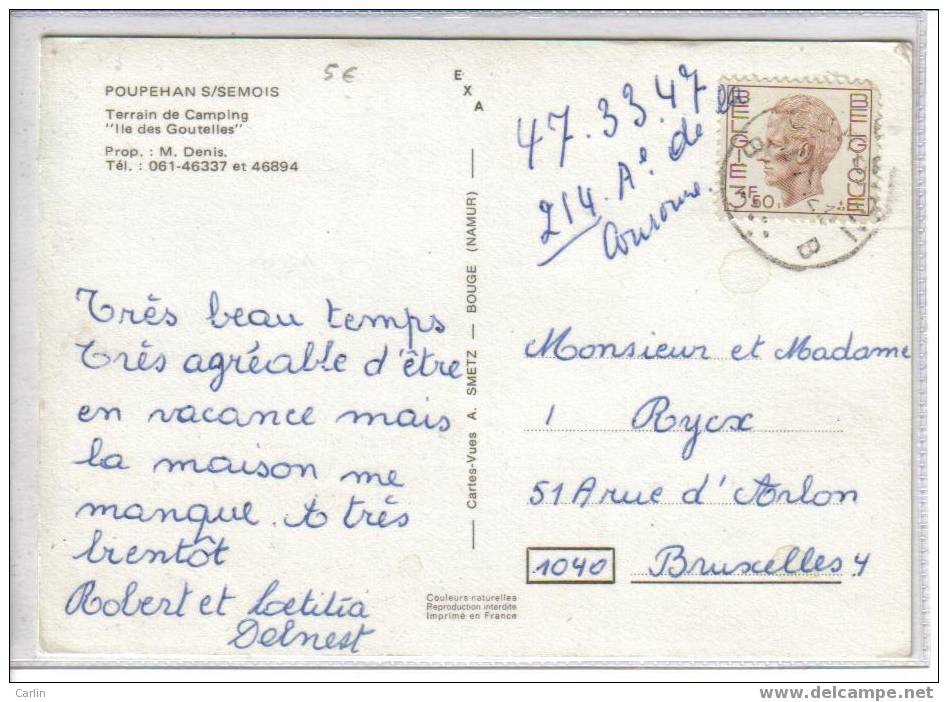 POUPEHAN S/SEMOIS
Terrain de Camping
"Ile des Goutelles"
Prop. : M. Denis.
Tél. : 061-46337 et 46894
5€
EXA
Cartes-Vues A. SMETZ — BOUGE (NAMUR)
47.33.47
214. A^e de la
Couronne.
BELGIE-BELGIQUE
3F50
B
Très beau temps
Très agréable d'être
en vacance mais
la maison me
manque. A très
bientôt
Robert et Loetitia
Delnest
Monsieur et Madame
Rycx
51A rue d'Arlon
1040 Bruxelles 4
Couleurs naturelles
Reproduction interdite
Imprimé en France
Carlin
www.delcampe.net